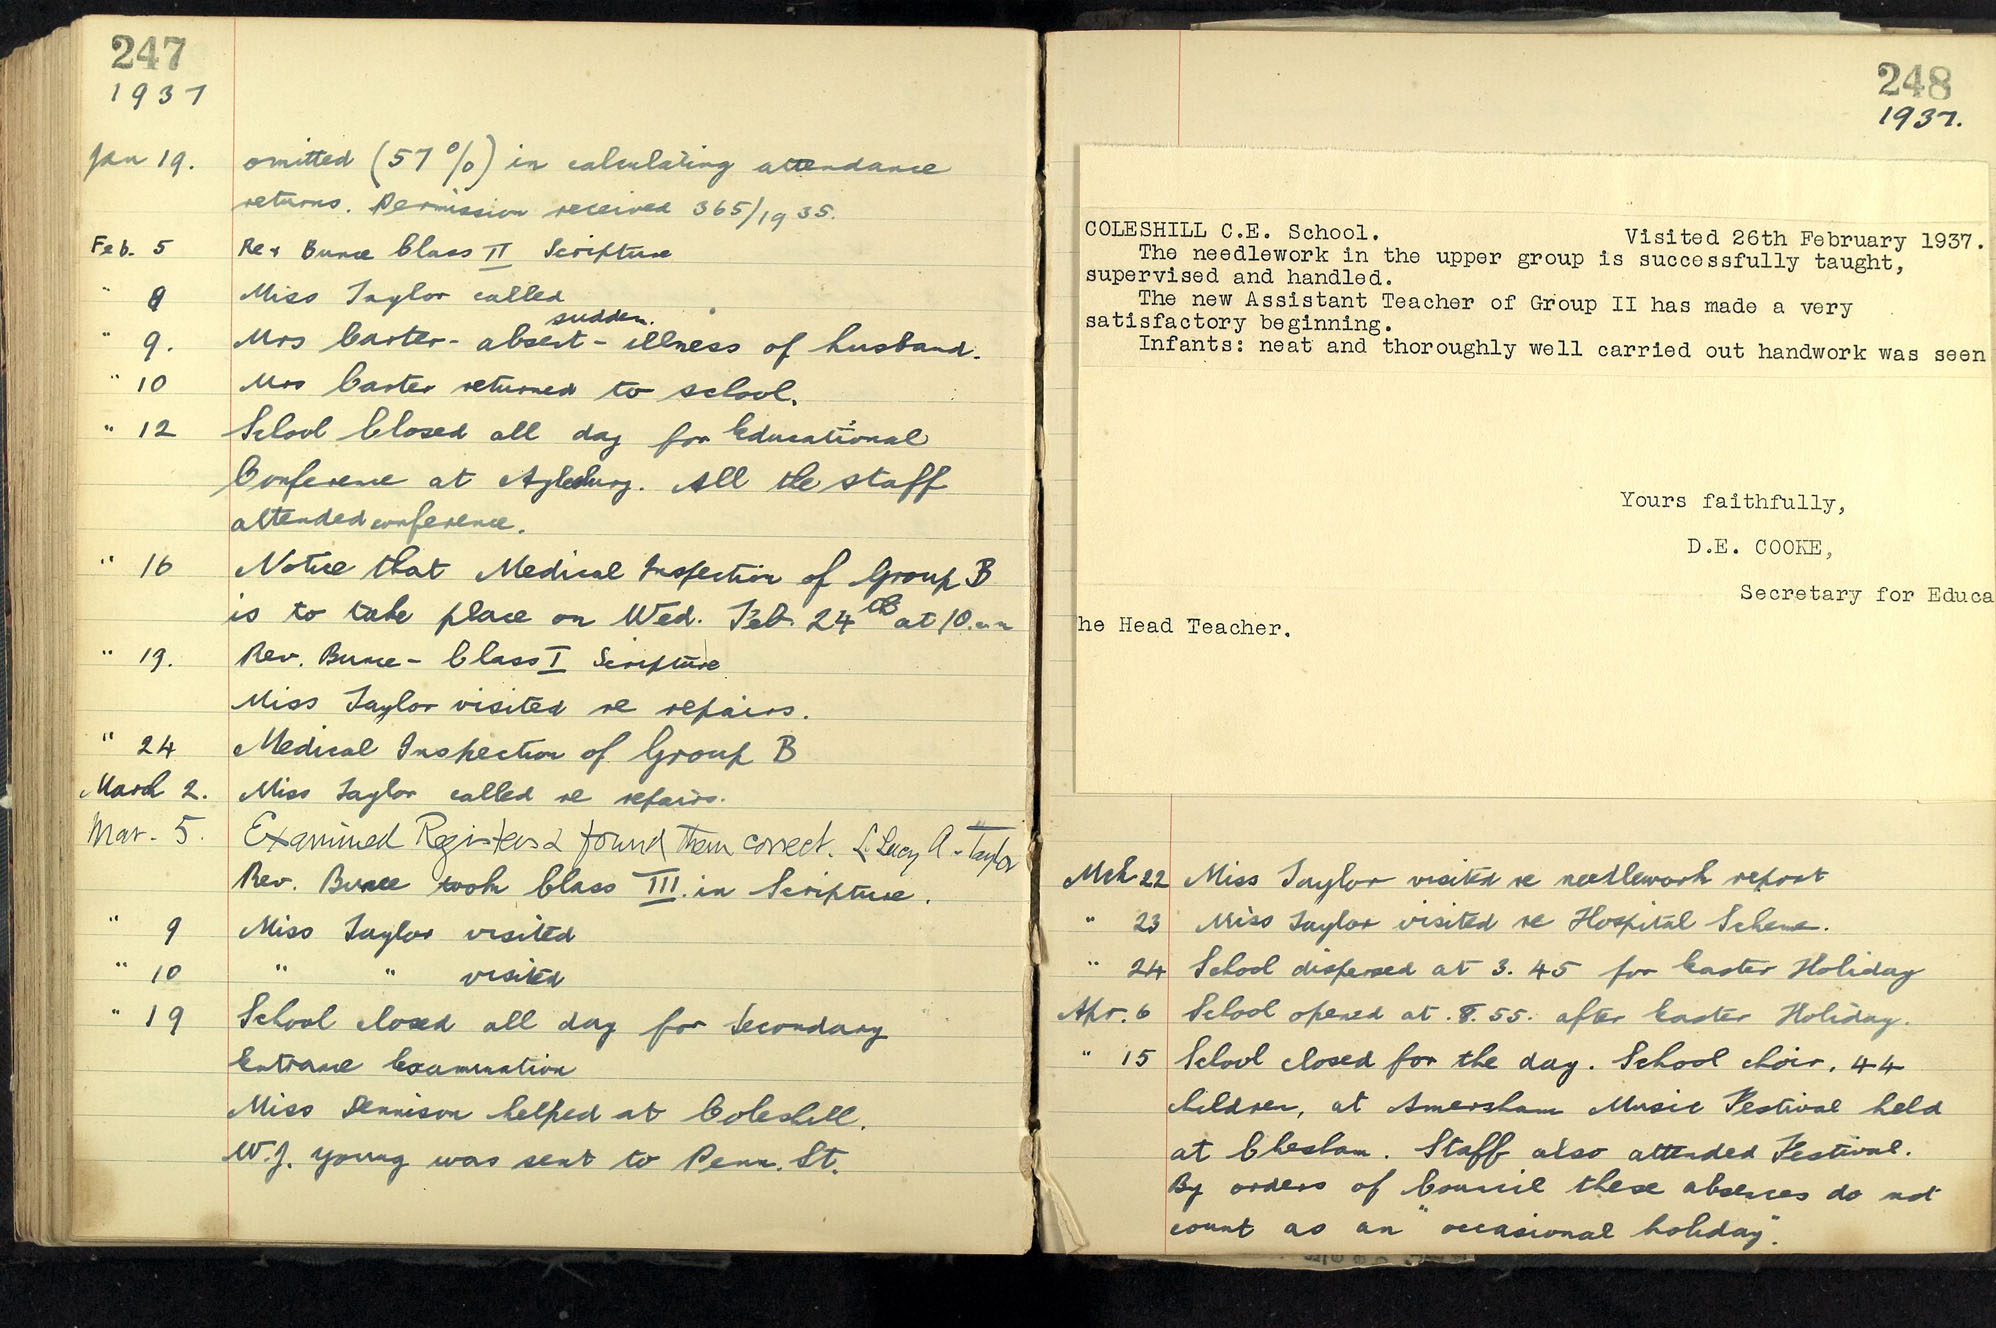 247
1937
Jan 19. omitted (57%) in calculating attendance
returns. Permission received 365/1935.
Feb. 5 Rev Bunce Class II Scripture
" 8 Miss Taylor called
sudden
" 9. Mrs Carter - absent - illness of husband.
" 10 Mrs Carter returned to school.
" 12 School Closed all day for Educational
Conference at Aylesbury. All the staff
attended conference.
" 16 Notice that Medical Inspection of Group B
is to take place on Wed. Feb. 24th at 10. a.m
" 19. Rev. Bunce - Class I Scripture
Miss Taylor visited re repairs.
" 24 Medical Inspection of Group B
March 2. Miss Taylor called re repairs.
Mar. 5. Examined Registers & found them correct. Lucy A. Taylor
Rev. Bunce took Class III in Scripture.
" 9 Miss Taylor visited
" 10 " " visited
" 19 School closed all day for Secondary
Entrance Examination
Miss Dennison helped at Coleshill.
W.J. Young was sent to Penn. St.
248
1937.
COLESHILL C.E. School. Visited 26th February 1937.
The needlework in the upper group is successfully taught,
supervised and handled.
The new Assistant Teacher of Group II has made a very
satisfactory beginning.
Infants: neat and thoroughly well carried out handwork was seen
Yours faithfully,
D.E. COOKE,
Secretary for Educa
he Head Teacher.
Mch 22 Miss Taylor visited re needlework report
" 23 Miss Taylor visited re Hospital Scheme.
" 24 School dispersed at 3.45 for Easter Holiday
Apr. 6 School opened at 8.55. after Easter Holiday.
" 15 School closed for the day. School choir, 44
children, at Amersham Music Festival held
at Chesham. Staff also attended Festival.
By orders of Council these absences do not
count as an "occasional holiday".